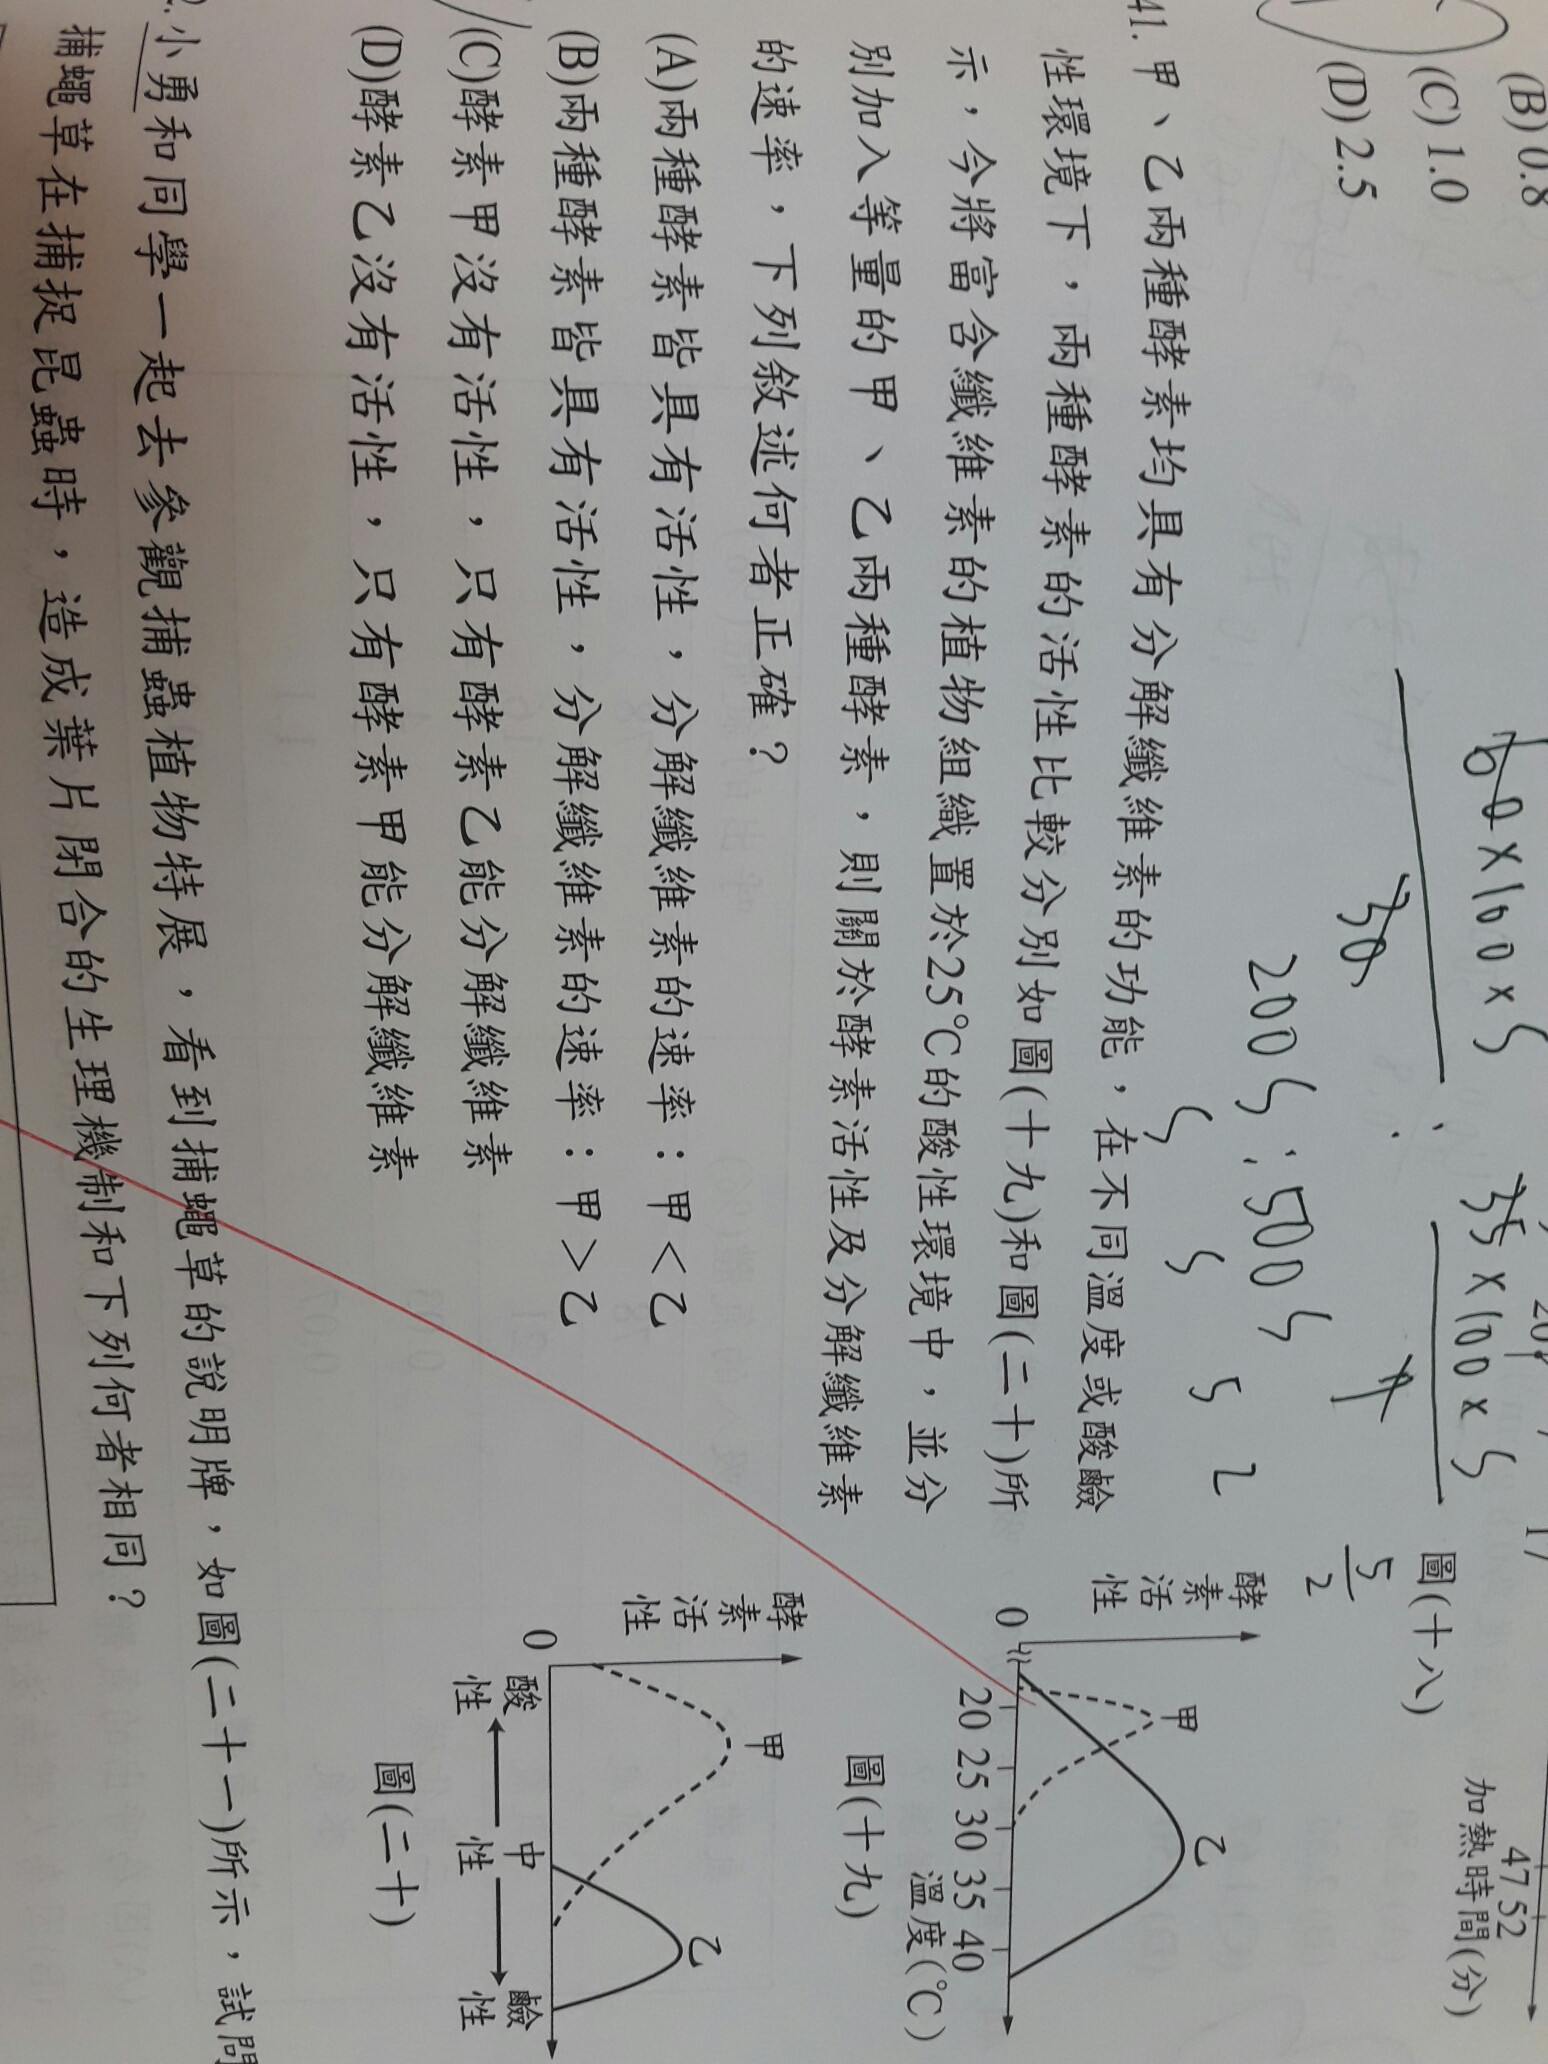 (B) 0.8
(C) 1.0
(D) 2.5
60×100×5
30
:
35×100×5
2005:5005
5 5 5 2
5
2
圖(十八)
47 52
加熱時間(分)
41. 甲、乙兩種酵素均具有分解纖維素的功能,在不同溫度或酸鹼
性環境下,兩種酵素的活性比較分別如圖(十九)和圖(二十)所
示,今將富含纖維素的植物組織置於25℃的酸性環境中,並分
別加入等量的甲、乙兩種酵素,則關於酵素活性及分解纖維素
的速率,下列敘述何者正確?
(A)兩種酵素皆具有活性,分解纖維素的速率:甲<乙
(B)兩種酵素皆具有活性,分解纖維素的速率:甲>乙
(C)酵素甲沒有活性,只有酵素乙能分解纖維素
(D)酵素乙沒有活性,只有酵素甲能分解纖維素
酵素活性
0
甲
乙
20 25 30 35 40
溫度(℃)
圖(十九)
酵素活性
0
甲
乙
酸性 中性 鹼性
圖(二十)
2. 小勇和同學一起去參觀捕蟲植物特展,看到捕蠅草的說明牌,如圖(二十一)所示,試問
捕蠅草在捕捉昆蟲時,造成葉片閉合的生理機制和下列何者相同?